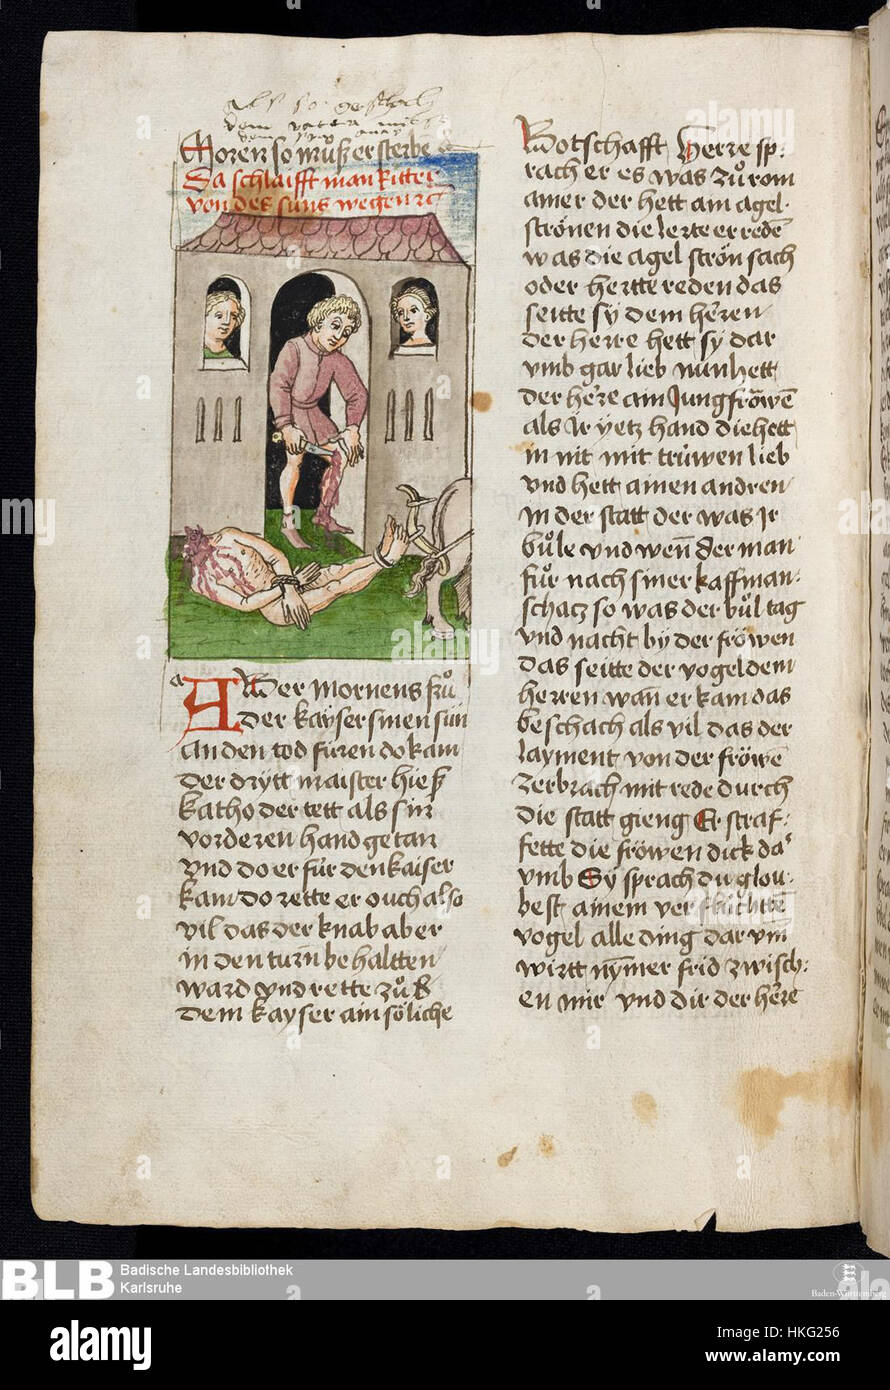 als so geschach
dem vatter
Moren so můß er sterbē
Da schlaifft man Ritter
von des suns wegen rc
A Der mornens frů
der kayser sinen sun
an den tod füren do kam
der drytt maister hieß
katho der tett als sin
vorderen hand getan
vnd do er für den kaiser
kam do rette er ouch also
vil das der knab aber
in den turn̄ behaltten
ward vnd rette zůß
dem kayser ain söliche
Botschafft Herre sp:
rach er es was zů rom
ainer der hett ain agel
strönen die lerte er redē
was die agelströn sach
oder hortte reden das
seitte sy dem herren
der herre hett sy dar
vmb gar lieb nun hett
der here ain Jungfröwē
als Ir yetz hand die hett
in nit mit trüwen lieb
vnd hett ainen andren
in der statt der was Ir
bůle vnd wen̄ der man
fůr nach siner kaffman:
schatz so was der bůl tag
vnd nacht by der fröwen
das seitte der vogel dem
herren wan̄ er kam das
beschach als vil das der
layment von der fröwē
zerbrach mit rede durch
die statt gieng Er straf:
fette die fröwen dick da'
vmb Sy sprach du glou:
best ainem verflůchttē
vogel alle ding dar vm
wirtt nymer frid zwisch:
en mir vnd dir der here
BLB
Badische Landesbibliothek
Karlsruhe
Baden-Württemberg
alamy
Image ID: HKG256
www.alamy.com